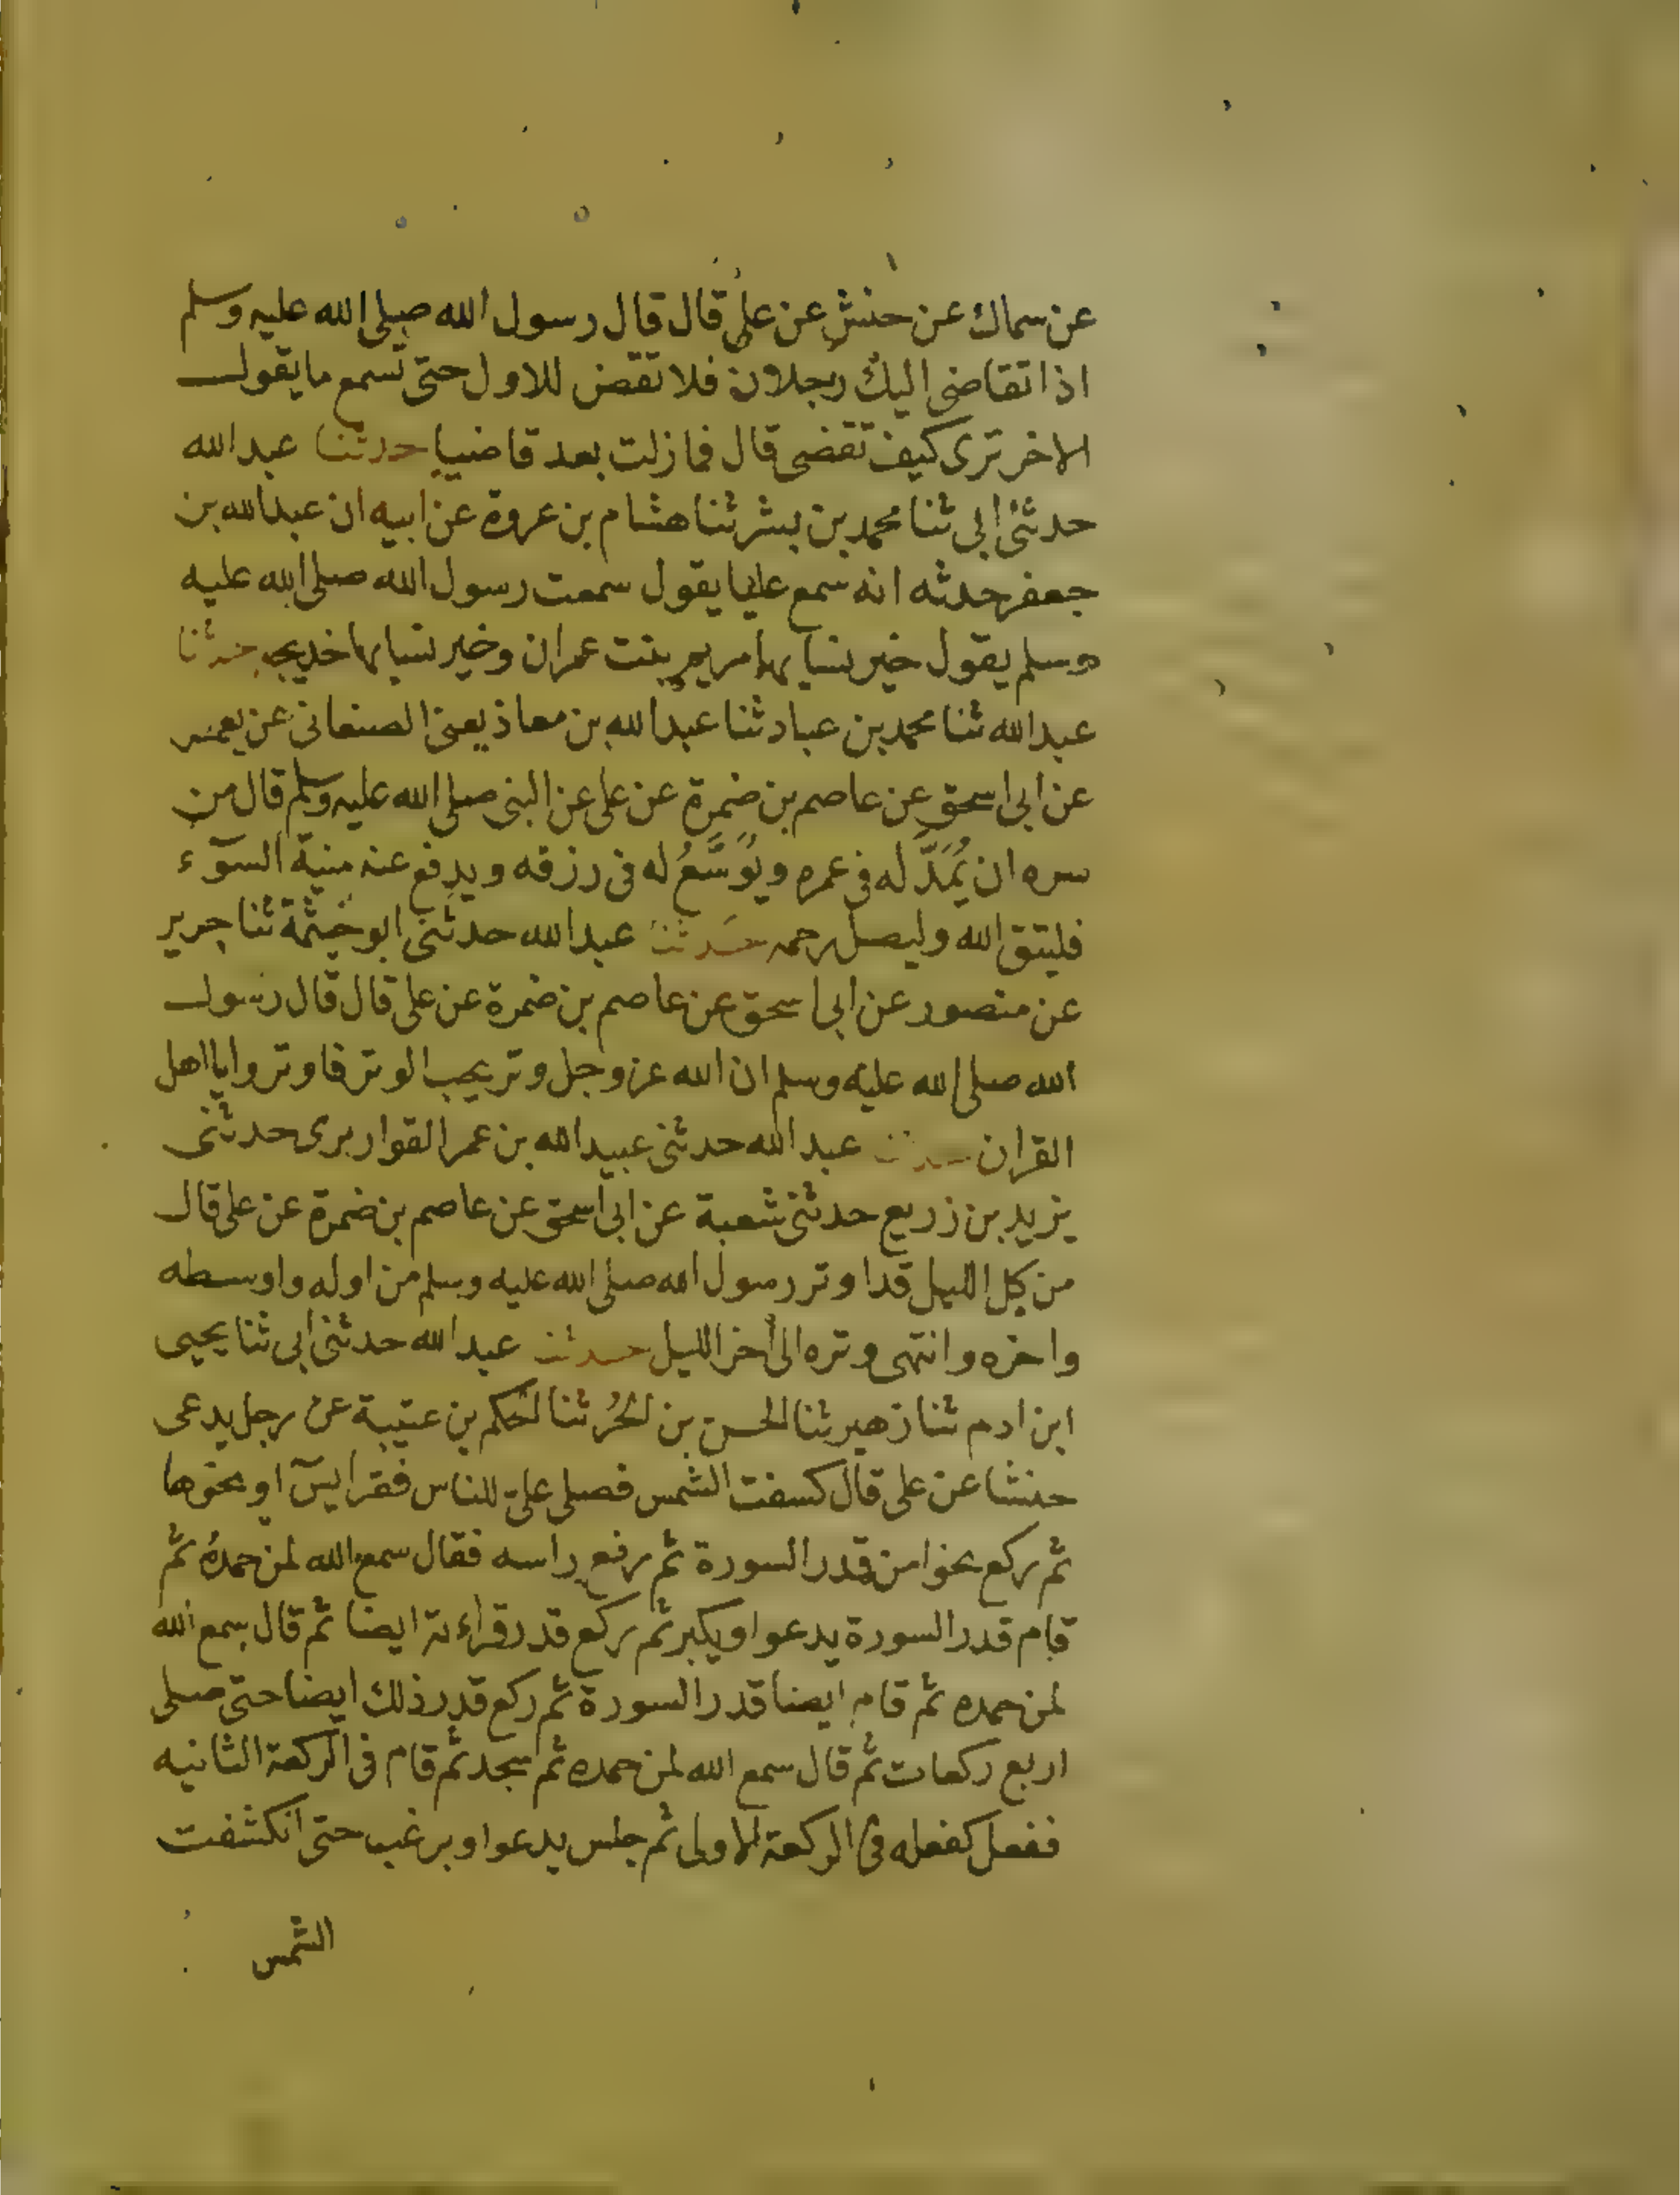 عن سماك عن حنش عن على قال قال رسول الله صلى الله عليه وسلم
اذا تقاضى اليك رجلان فلا تقض للاول حتى تسمع ما يقول
الاخر ترى كيف تقضى قال فما زلت بعد قاضيا حدثنا عبد الله
حدثنى ابى ثنا محمد بن بشر ثنا هشام بن عروة عن ابيه ان عبد الله بن
جعفر حدثه انه سمع عليا يقول سمعت رسول الله صلى الله عليه
وسلم يقول خير نسايها مريم بنت عمران وخير نسايها خديجه حدثنا
عبد الله ثنا محمد بن عباد ثنا عبد الله بن معاذ يعنى الصنعانى عن يعمر
عن ابى اسحق عن عاصم بن ضمرة عن على عن النبى صلى الله عليه وسلم قال من
سره ان يُمَدَّ له فى عمره ويُوَسَّعُ له فى رزقه ويدفع عنه مِنية السوٓء
فليتق الله وليصل رحمه حدثنا عبد الله حدثنى ابو خيثمة ثنا جرير
عن منصور عن ابى اسحق عن عاصم بن ضمرة عن على قال قال رسول
الله صلى الله عليه وسلم ان الله عز وجل وتر يحب الوتر فاوتروا يا اهل
القران حدثنا عبد الله حدثنى عبيد الله بن عمر القواريرى حدثنى
يزيد بن زريع حدثنى شعبة عن ابى اسحق عن عاصم بن ضمرة عن على قال
من كل الليل قد اوتر رسول الله صلى الله عليه وسلم من اوله واوسطه
واخره وانتهى وتره الى اخر الليل حدثنا عبد الله حدثنى ابى ثنا يحيى
ابن ادم ثنا زهير ثنا الحسن بن الحُر ثنا الحكم بن عتيبة عن رجل يدعى
حنشا عن على قال كسفت الشمس فصلى علىّ للناس فقرا يسٓ او نحوها
ثم ركع نحوا من قدر السورة ثم رفع راسه فقال سمع الله لمن حمدهُ ثم
قام قدر السورة يدعوا ويكبر ثم ركع قدر قراءته ايضا ثم قال سمع الله
لمن حمده ثم قام ايضا قدر السورة ثم ركع قدر ذلك ايضا حتى صلى
اربع ركعات ثم قال سمع الله لمن حمده ثم سجد ثم قام فى الركعة الثانيه
ففعل كفعله فى الركعة الاولى ثم جلس يدعوا ويرغب حتى انكشفت
الشمس